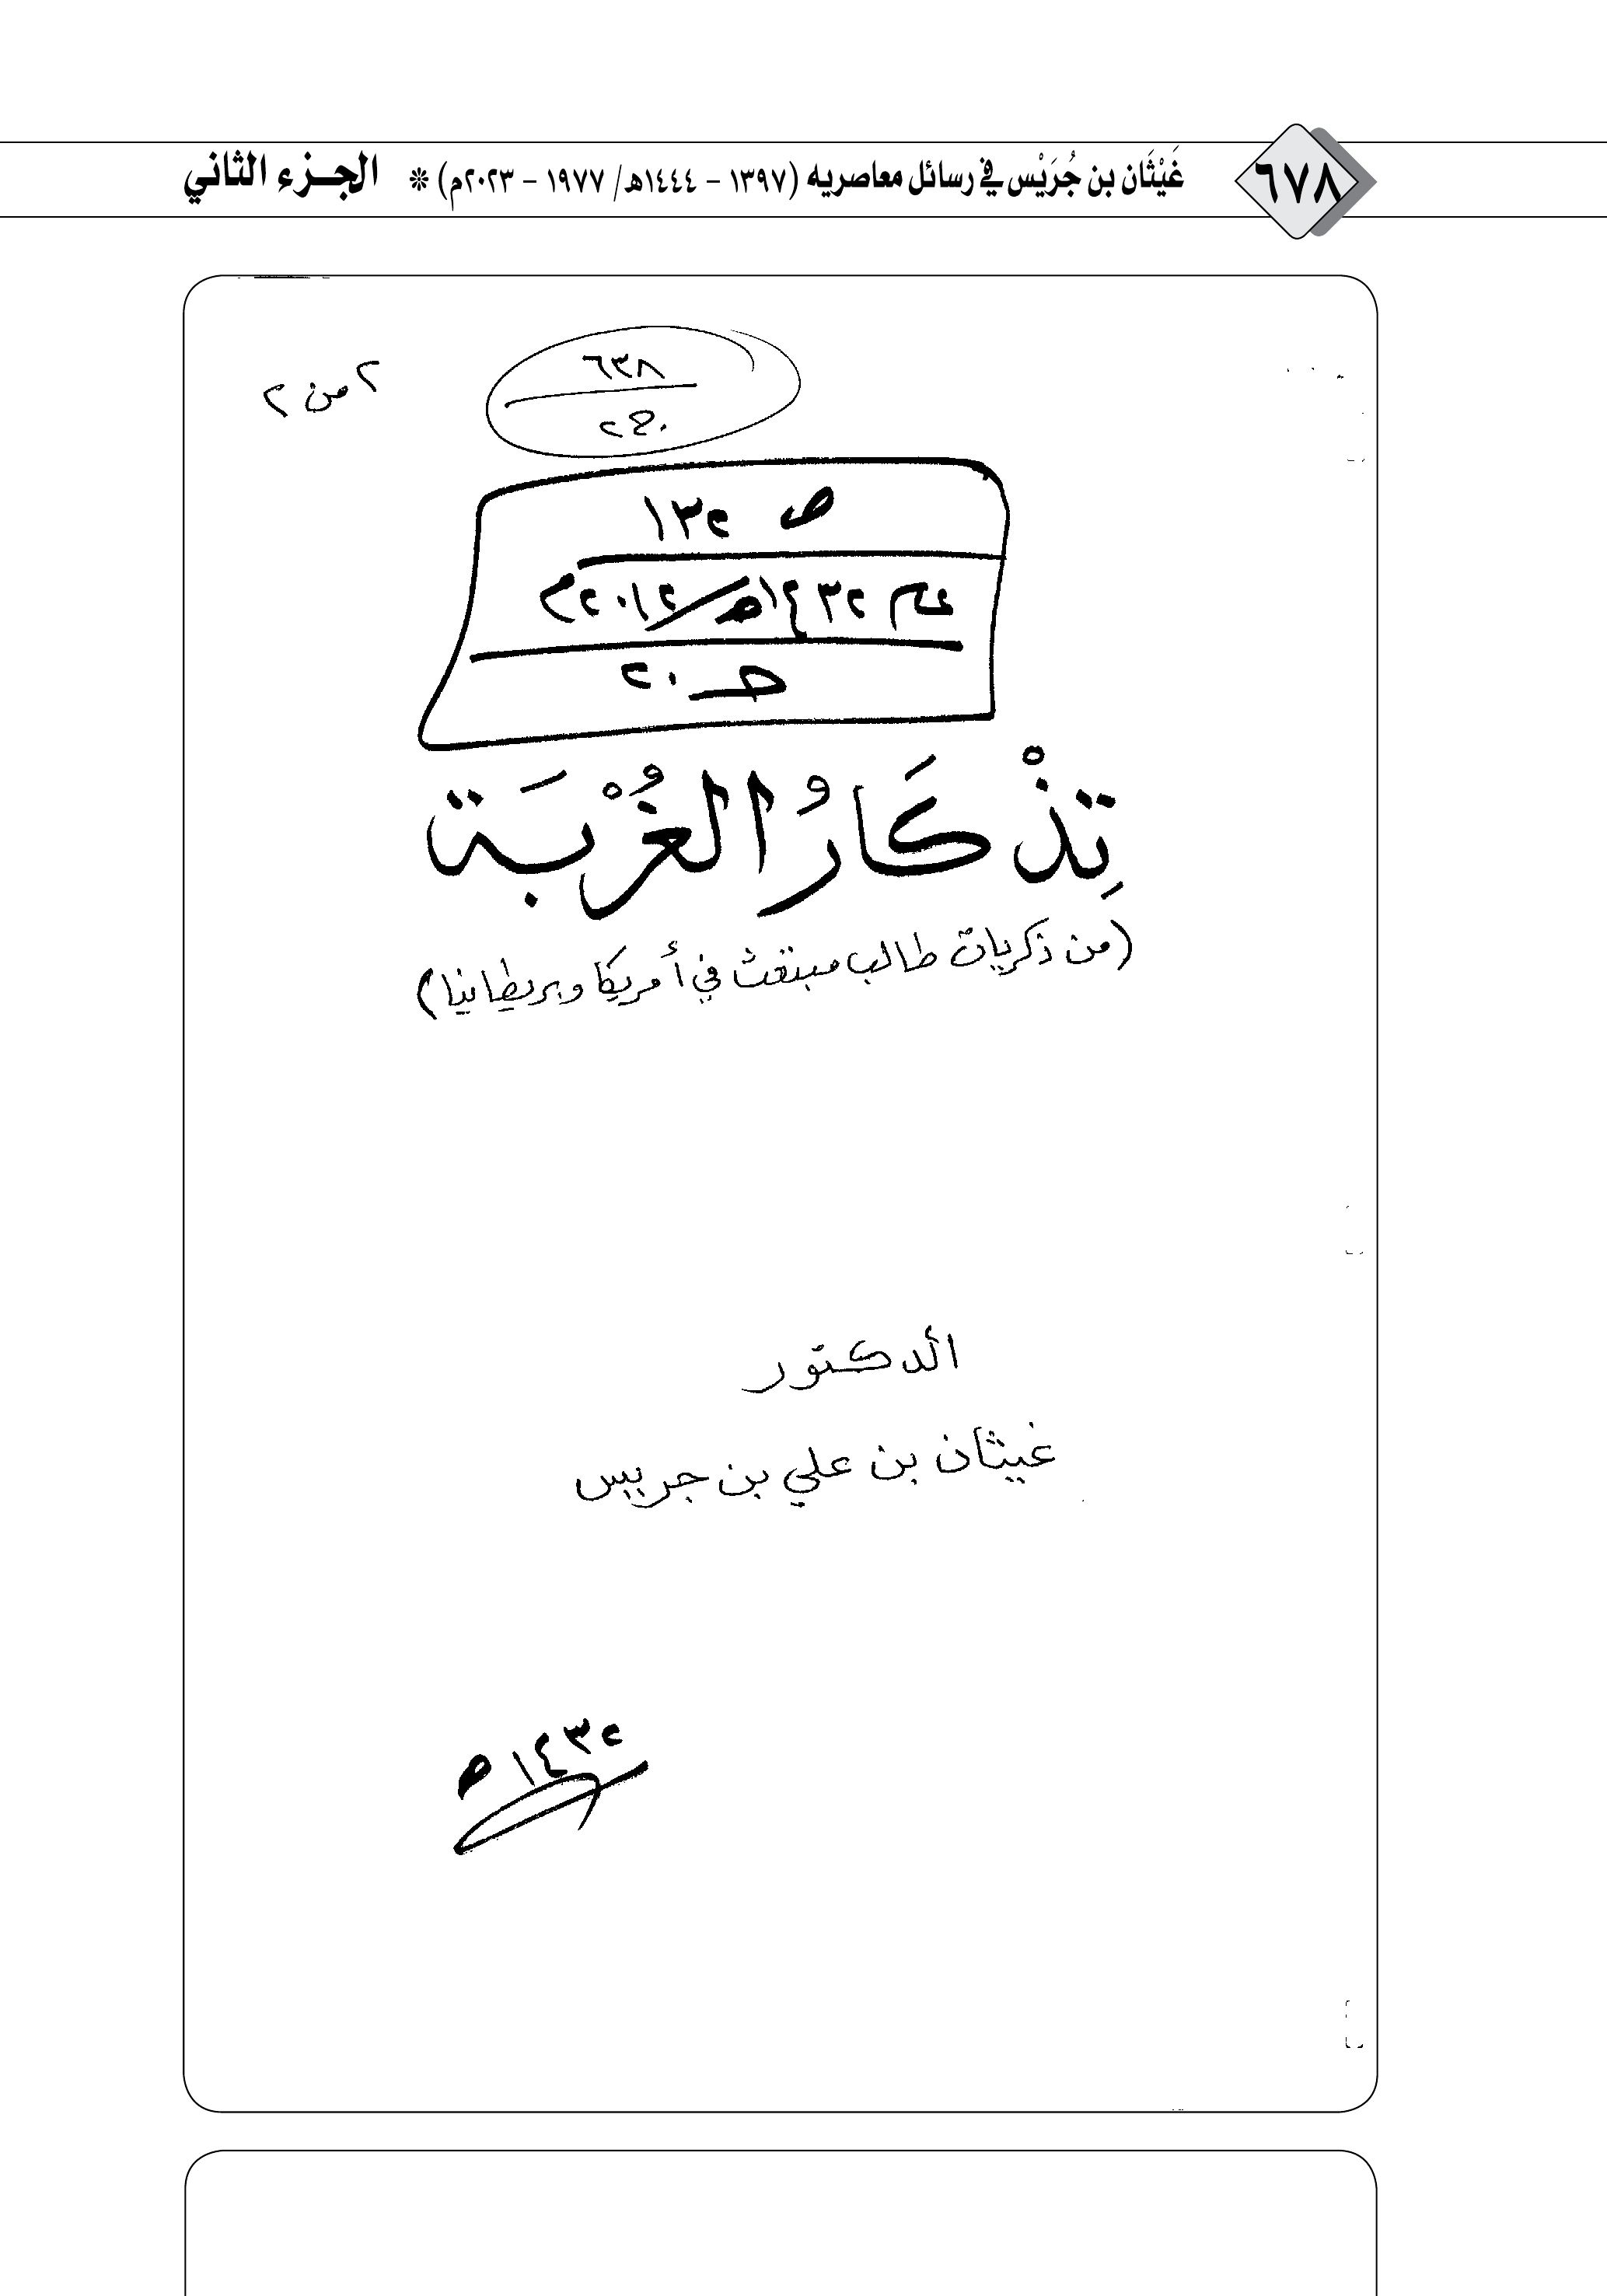 ٦٧٨ غَيْثَان بن جُرَيْس في رسائل معاصريه (١٣٩٧ - ١٤٤٤هـ/ ١٩٧٧ - ٢٠٢٣م) * الجزء الثاني
٢ من ٢
٦٣٨
ص ١٣٢
عام ١٤٣٢هـ/٢٠١٢م
حـ ٢٠
تِذْكَارُ الغُرْبَة
(من ذكريات طالب مبتعث في أمريكا وبريطانيا)
الدكتور
غيثان بن علي بن جريس
١٤٣٢هـ